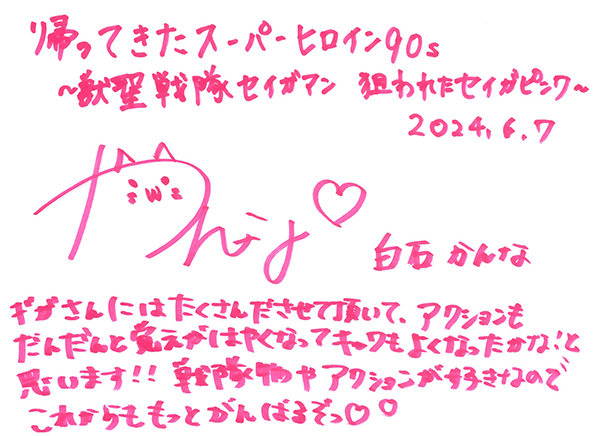 帰ってきたスーパーヒロイン90s
~獣聖戦隊セイガマン 狙われたセイガピンク~
2024.6.7
かんな♡
白石かんな
ギガさんにはたくさんださせて頂いて、アクションも
だんだんと覚えがはやくなってキックもよくなったかな!と
思います!! 戦隊物やアクションが好きなので
これからももっとがんばるぞっ♡♡